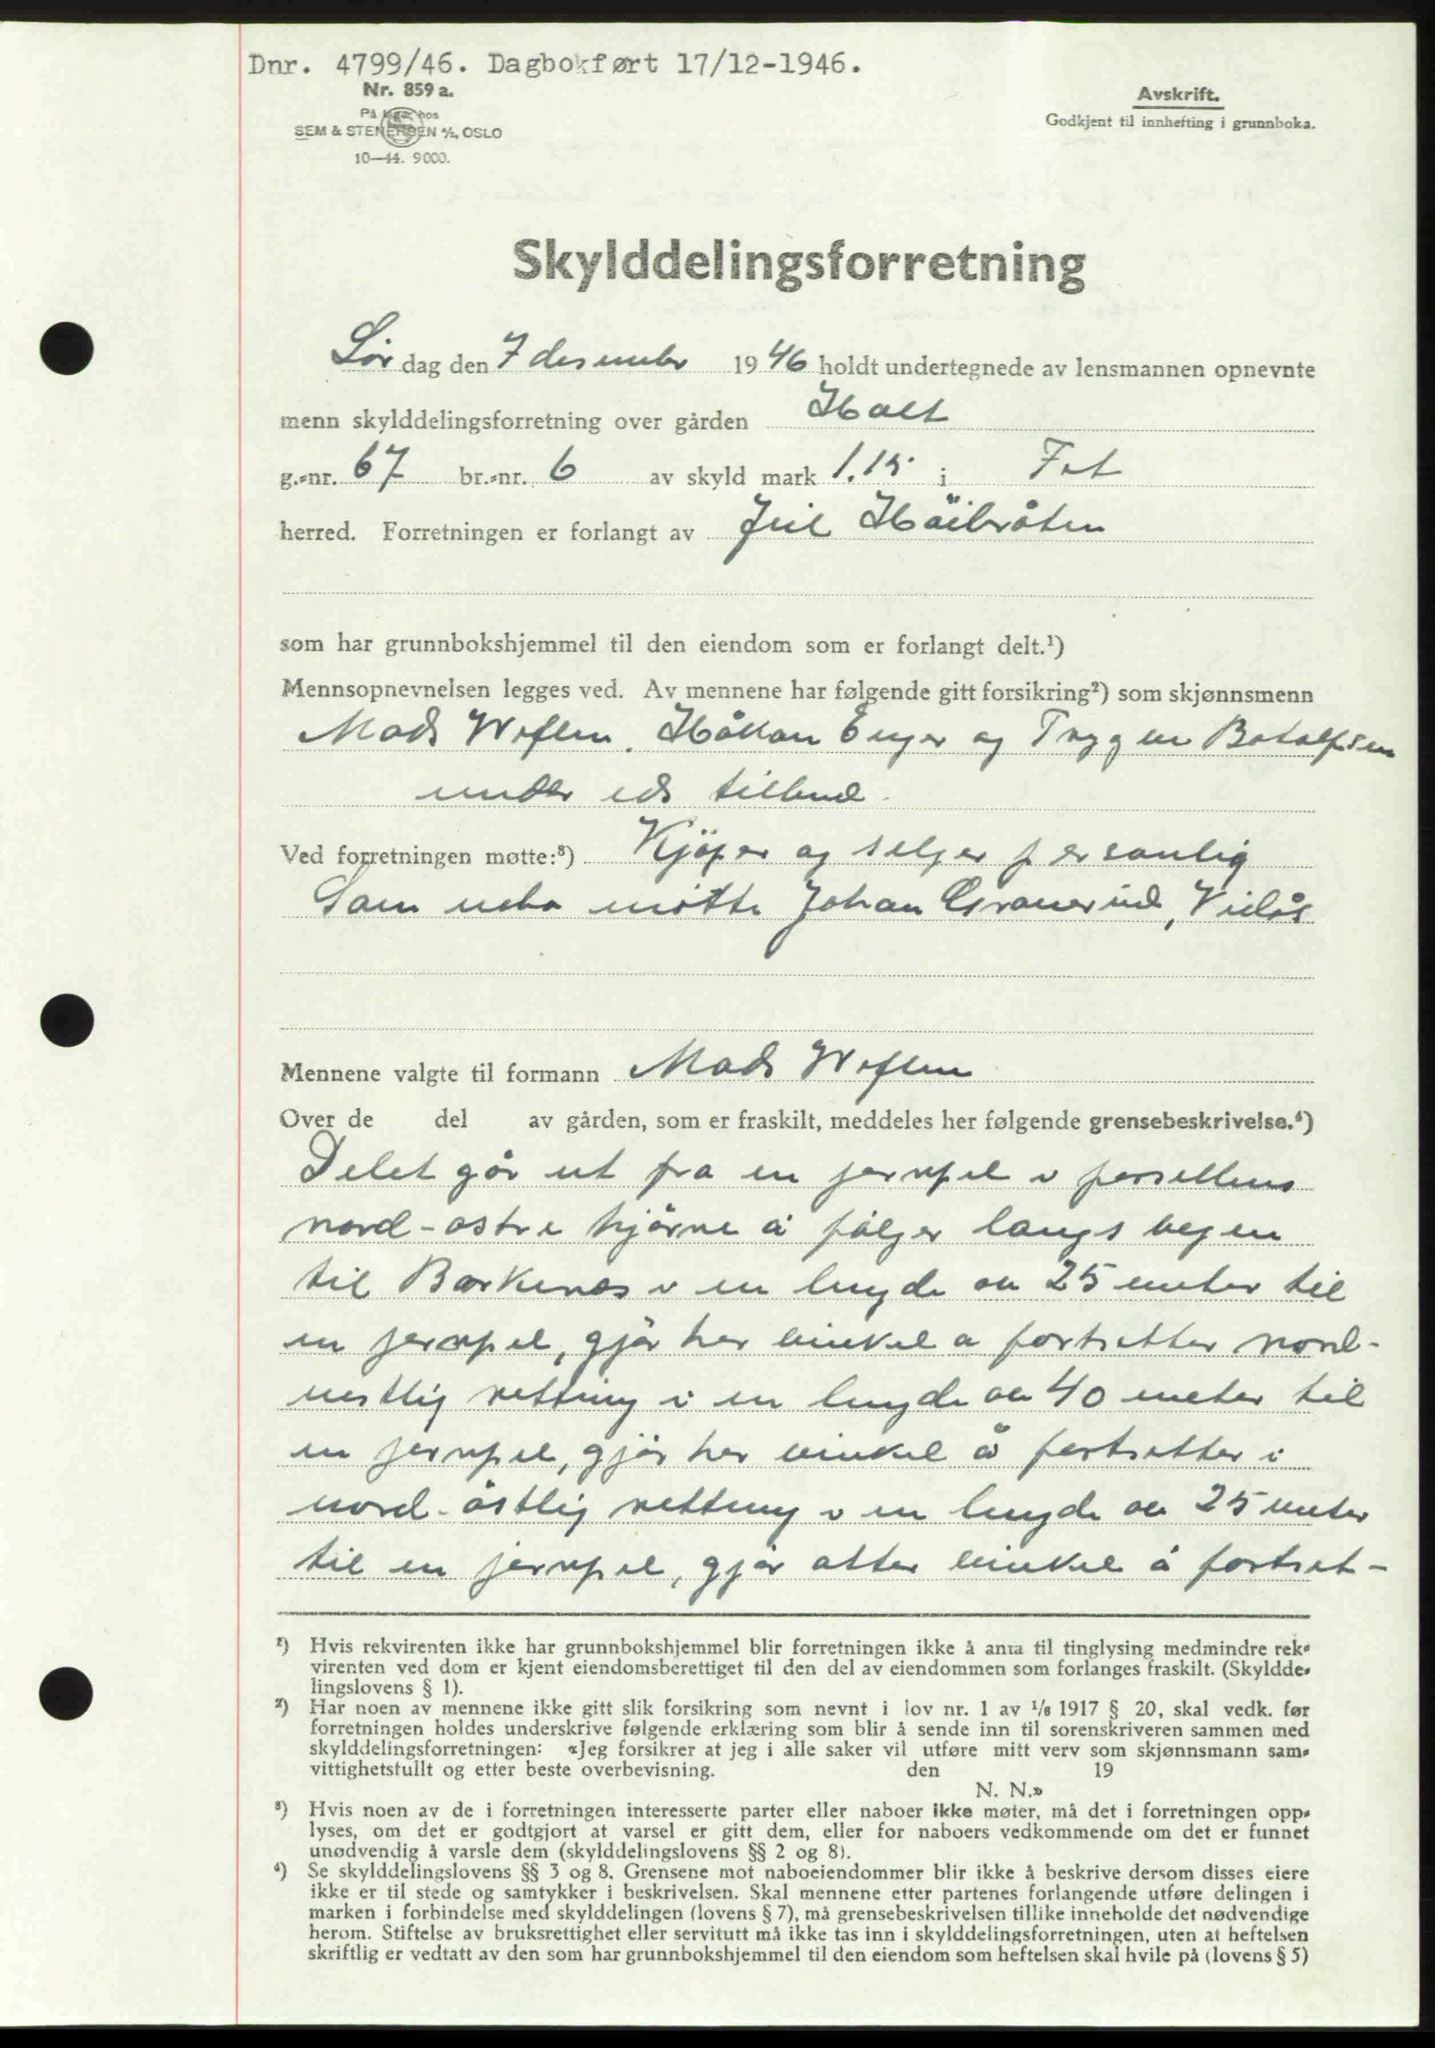 Dnr. 4799/46. Dagbokført 17/12-1946.
Nr. 859 a.
På lager hos
SEM & STENERSEN A/S, OSLO
10—44. 9000.
Avskrift.
Godkjent til innhefting i grunnboka.
Skylddelingsforretning
Lør dag den 7 desember 1946 holdt undertegnede av lensmannen opnevnte
menn skylddelingsforretning over gården Holt
g.-nr. 67 br.-nr. 6 av skyld mark 1.15 i Fet
herred. Forretningen er forlangt av Juil Höibråten
som har grunnbokshjemmel til den eiendom som er forlangt delt.¹)
Mennsopnevnelsen legges ved. Av mennene har følgende gitt forsikring²) som skjønnsmenn
Mads Weflen, Håkon Enger og Trygve Botolfsen
under eds tilbud.
Ved forretningen møtte:³) Kjöper og selger personlig
Som nabo mötte Johan Granerud, Vidås
Mennene valgte til formann Mads Weflen
Over de del av gården, som er fraskilt, meddeles her følgende grensebeskrivelse.⁴)
Delet går ut fra en jernpel i parsellens
nord-östre hjörne å fölger langs vegen
til Barkenes i en lengde av 25 meter til
en jernpel, gjör her vinkel å fortsetter nord-
vestlig retting i en lengde av 40 meter til
en jernpel, gjör her vinkel å fortsetter i
nord-östlig retting i en lengde av 25 meter
til en jernpel, gjör atter vinkel å fortset-
¹) Hvis rekvirenten ikke har grunnbokshjemmel blir forretningen ikke å anta til tinglysing medmindre rek-
virenten ved dom er kjent eiendomsberettiget til den del av eiendommen som forlanges fraskilt. (Skyldde-
lingslovens § 1).
²) Har noen av mennene ikke gitt slik forsikring som nevnt i lov nr. 1 av 1/6 1917 § 20, skal vedk. før
forretningen holdes underskrive følgende erklæring som blir å sende inn til sorenskriveren sammen med
skylddelingsforretningen: «Jeg forsikrer at jeg i alle saker vil utføre mitt verv som skjønnsmann sam-
vittighetsfullt og etter beste overbevisning. den 19
N. N.»
³) Hvis noen av de i forretningen interesserte parter eller naboer ikke møter, må det i forretningen opp-
lyses, om det er godtgjort at varsel er gitt dem, eller for naboers vedkommende om det er funnet
unødvendig å varsle dem (skylddelingslovens §§ 2 og 8).
⁴) Se skylddelingslovens §§ 3 og 8. Grensene mot naboeiendommer blir ikke å beskrive dersom disses eiere
ikke er til stede og samtykker i beskrivelsen. Skal mennene etter partenes forlangende utføre delingen i
marken i forbindelse med skylddelingen (lovens § 7), må grensebeskrivelsen tillike inneholde det nødvendige
herom. Stiftelse av bruksrettighet eller servitutt må ikke tas inn i skylddelingsforretningen, uten at heftelsen
skriftlig er vedtatt av den som har grunnbokshjemmel til den eiendom som heftelsen skal hvile på (lovens § 5)